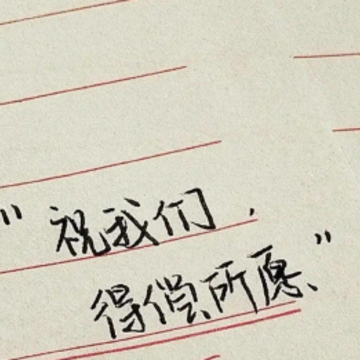 "祝我们，
得偿所愿"